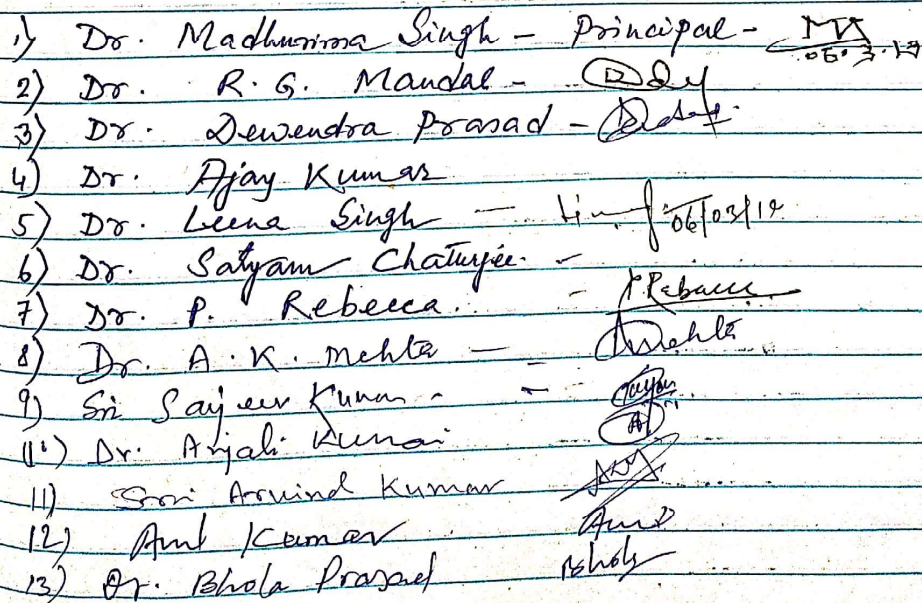 1) Dr. Madhurima Singh - Principal -
06.3.19
2) Dr. R. G. Mandal -
3) Dr. Dewendra Prasad -
4) Dr. Ajay Kumar
5) Dr. Leena Singh - 06/03/19
6) Dr. Satyam Chaturjee -
7) Dr. P. Rebecca. - P Rebecca
8) Dr. A. K. Mehta - AMehta
9) Sri Sanjeev Kumar -
10) Dr. Anjali Kumari
11) Sri Arvind Kumar
12) Amit Kumar
13) Dr. Bhola Prasad Bhola